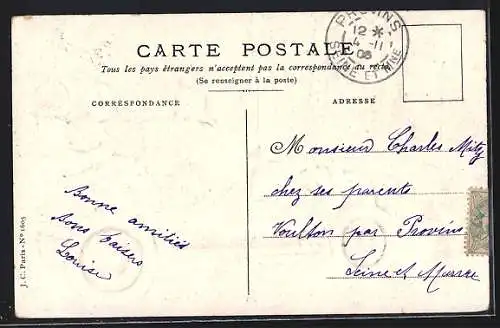 CARTE POSTALE
Tous les pays étrangers n'acceptent pas la correspondance au recto.
(Se renseigner à la poste)
CORRESPONDANCE
ADRESSE
PROVINS
12 *
4 -11
06
SEINE ET MNE
Monsieur Charles Mitz
chez ses parents
Voulton par Provins
Seine et Marne
Bonne amitiés
bons baisers
Louise
J. C. Paris - N° 1605